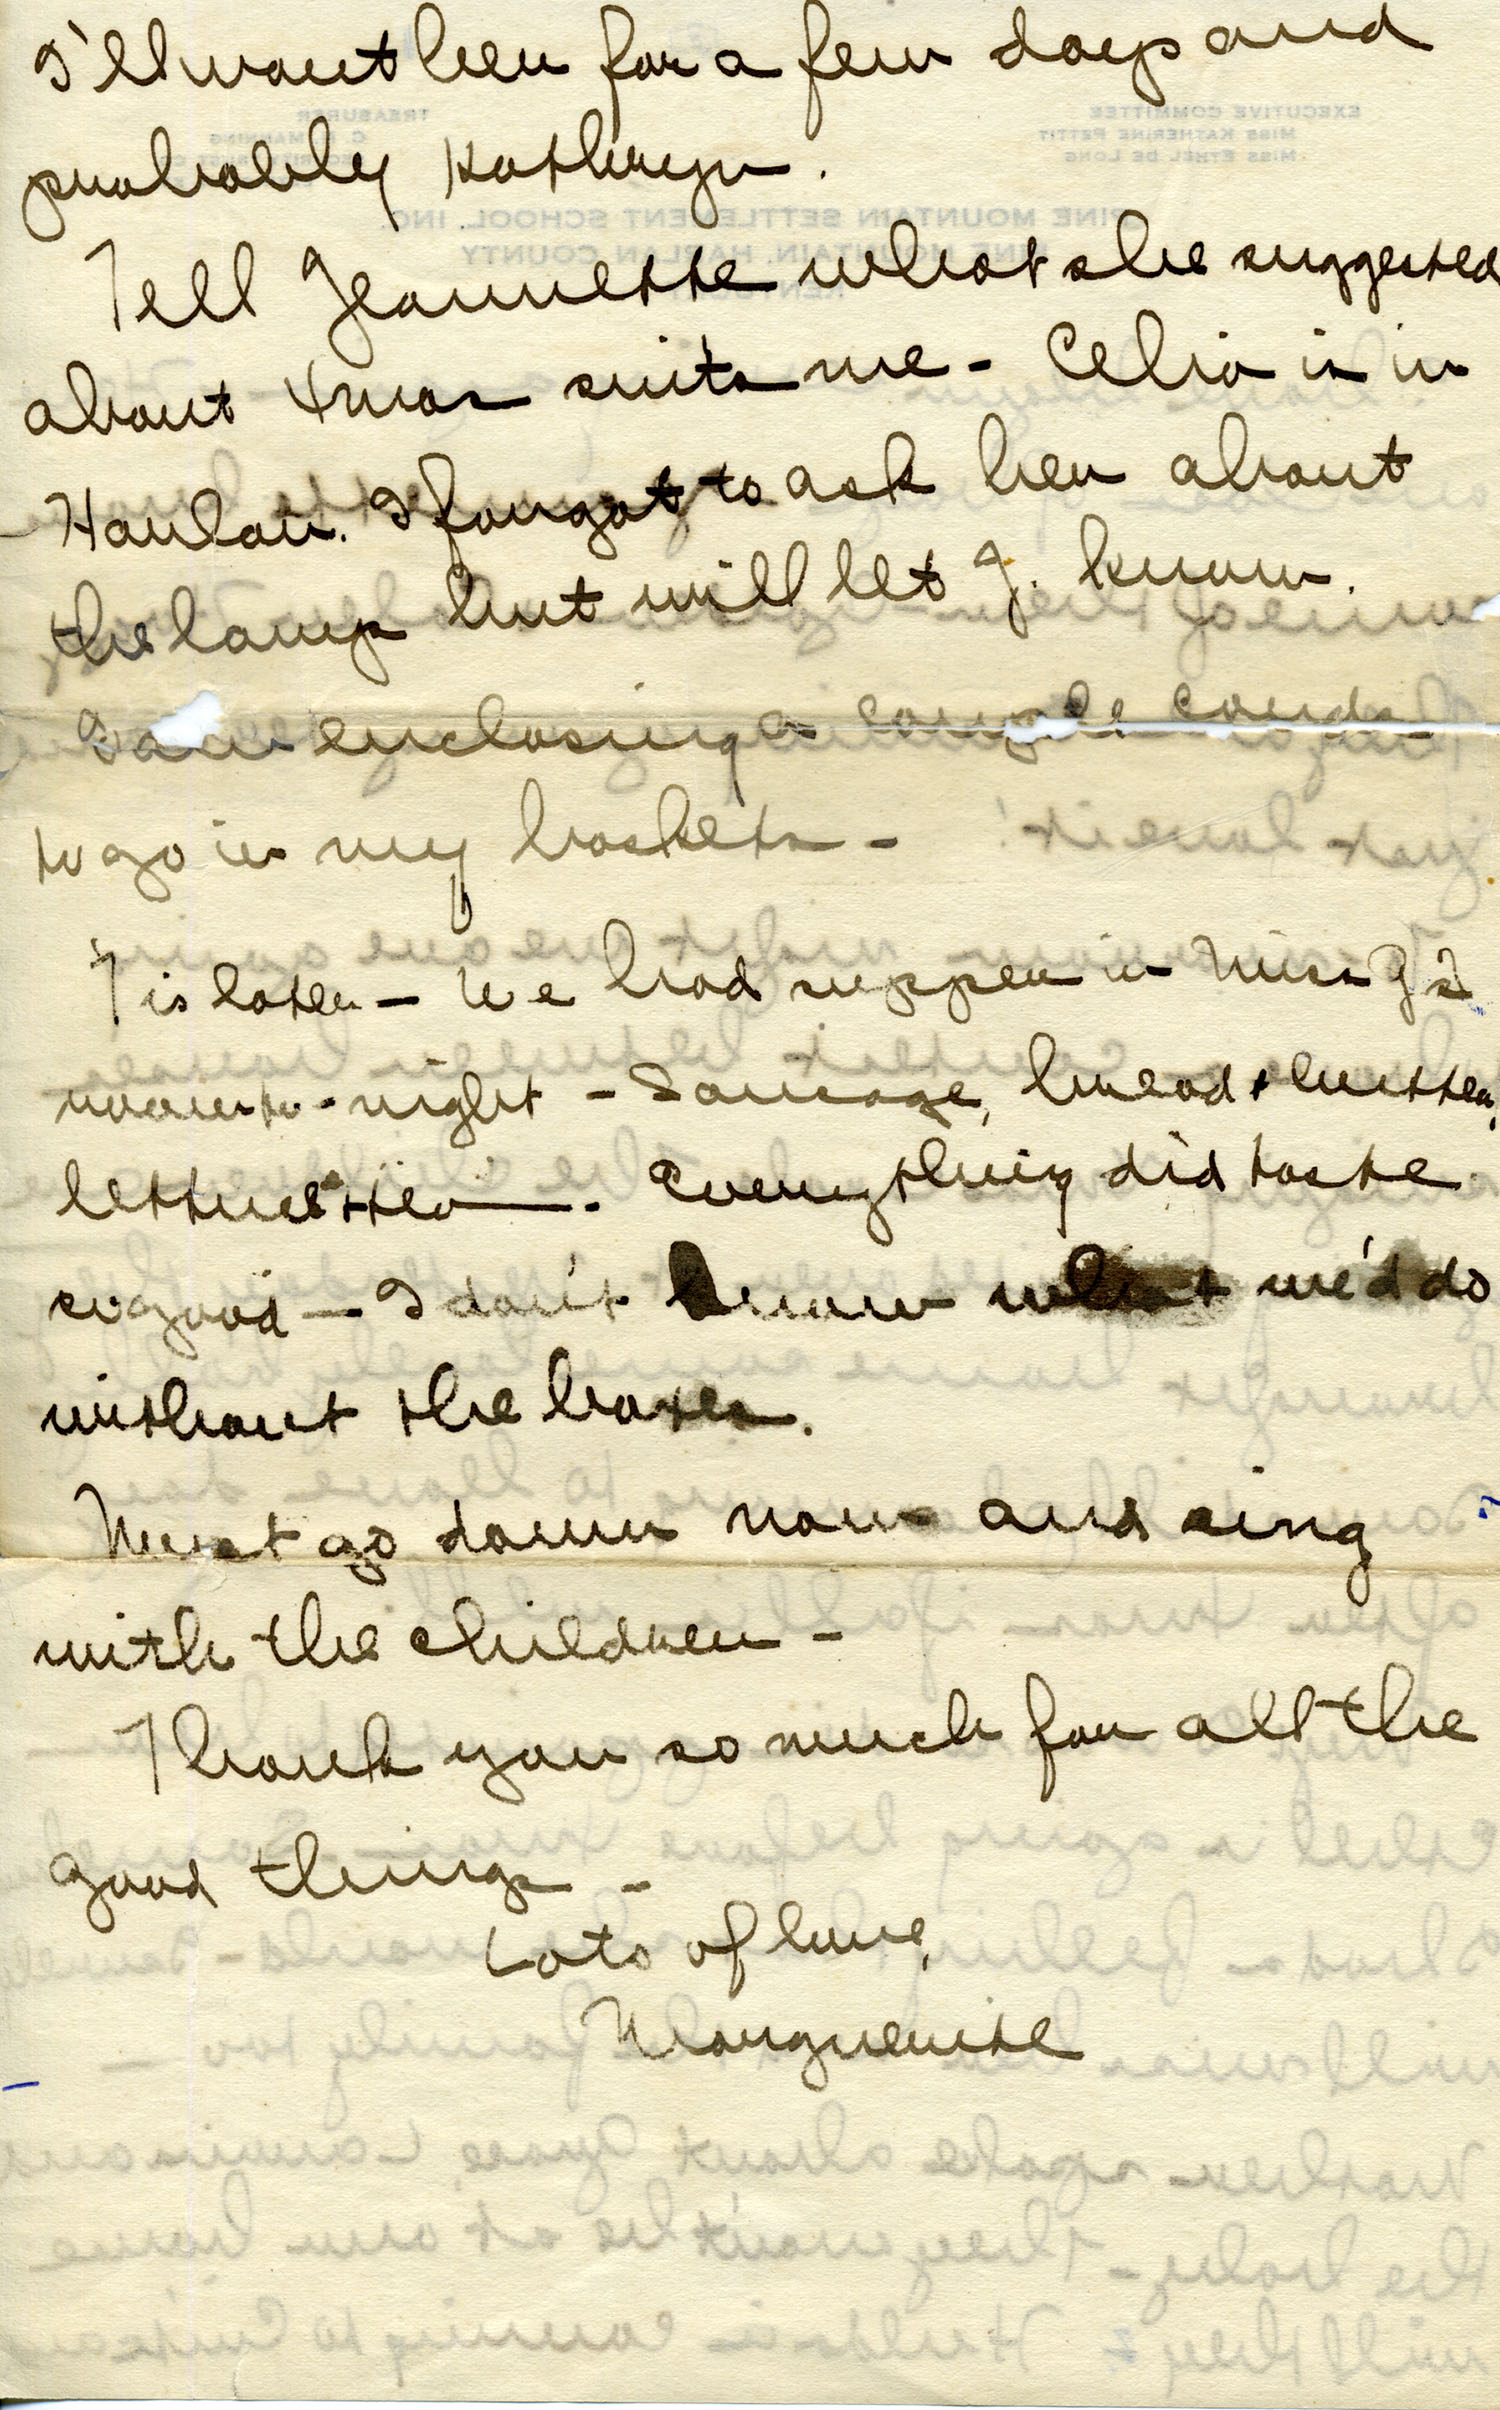 I'll want her for a few days and
probably Kathryn.
Tell Jeannette what she suggested
about Xmas suits me - Celia is in
Harlan. I forgot to ask her about
the lamp but will let J. know.
I am enclosing a couple cards
to go in my baskets -
T is later - We had supper in Miss G's
room to-night - Sausage, bread & butter,
lettuce & tea -. Everything did taste
so good - I don't know what we'd do
without the boxes.
Must go down now and sing
with the children -
Thank you so much for all the
good things -
Lots of love,
Marguerite